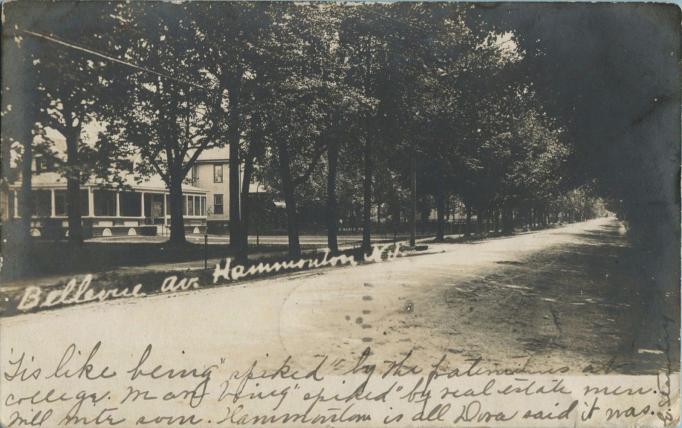 Bellevue Av. Hammonton N.J.
'Tis like being "spiked" by the fraternities at
college. Am being "spiked" by real estate men.
Will write soon. Hammonton is all Dora said it was.